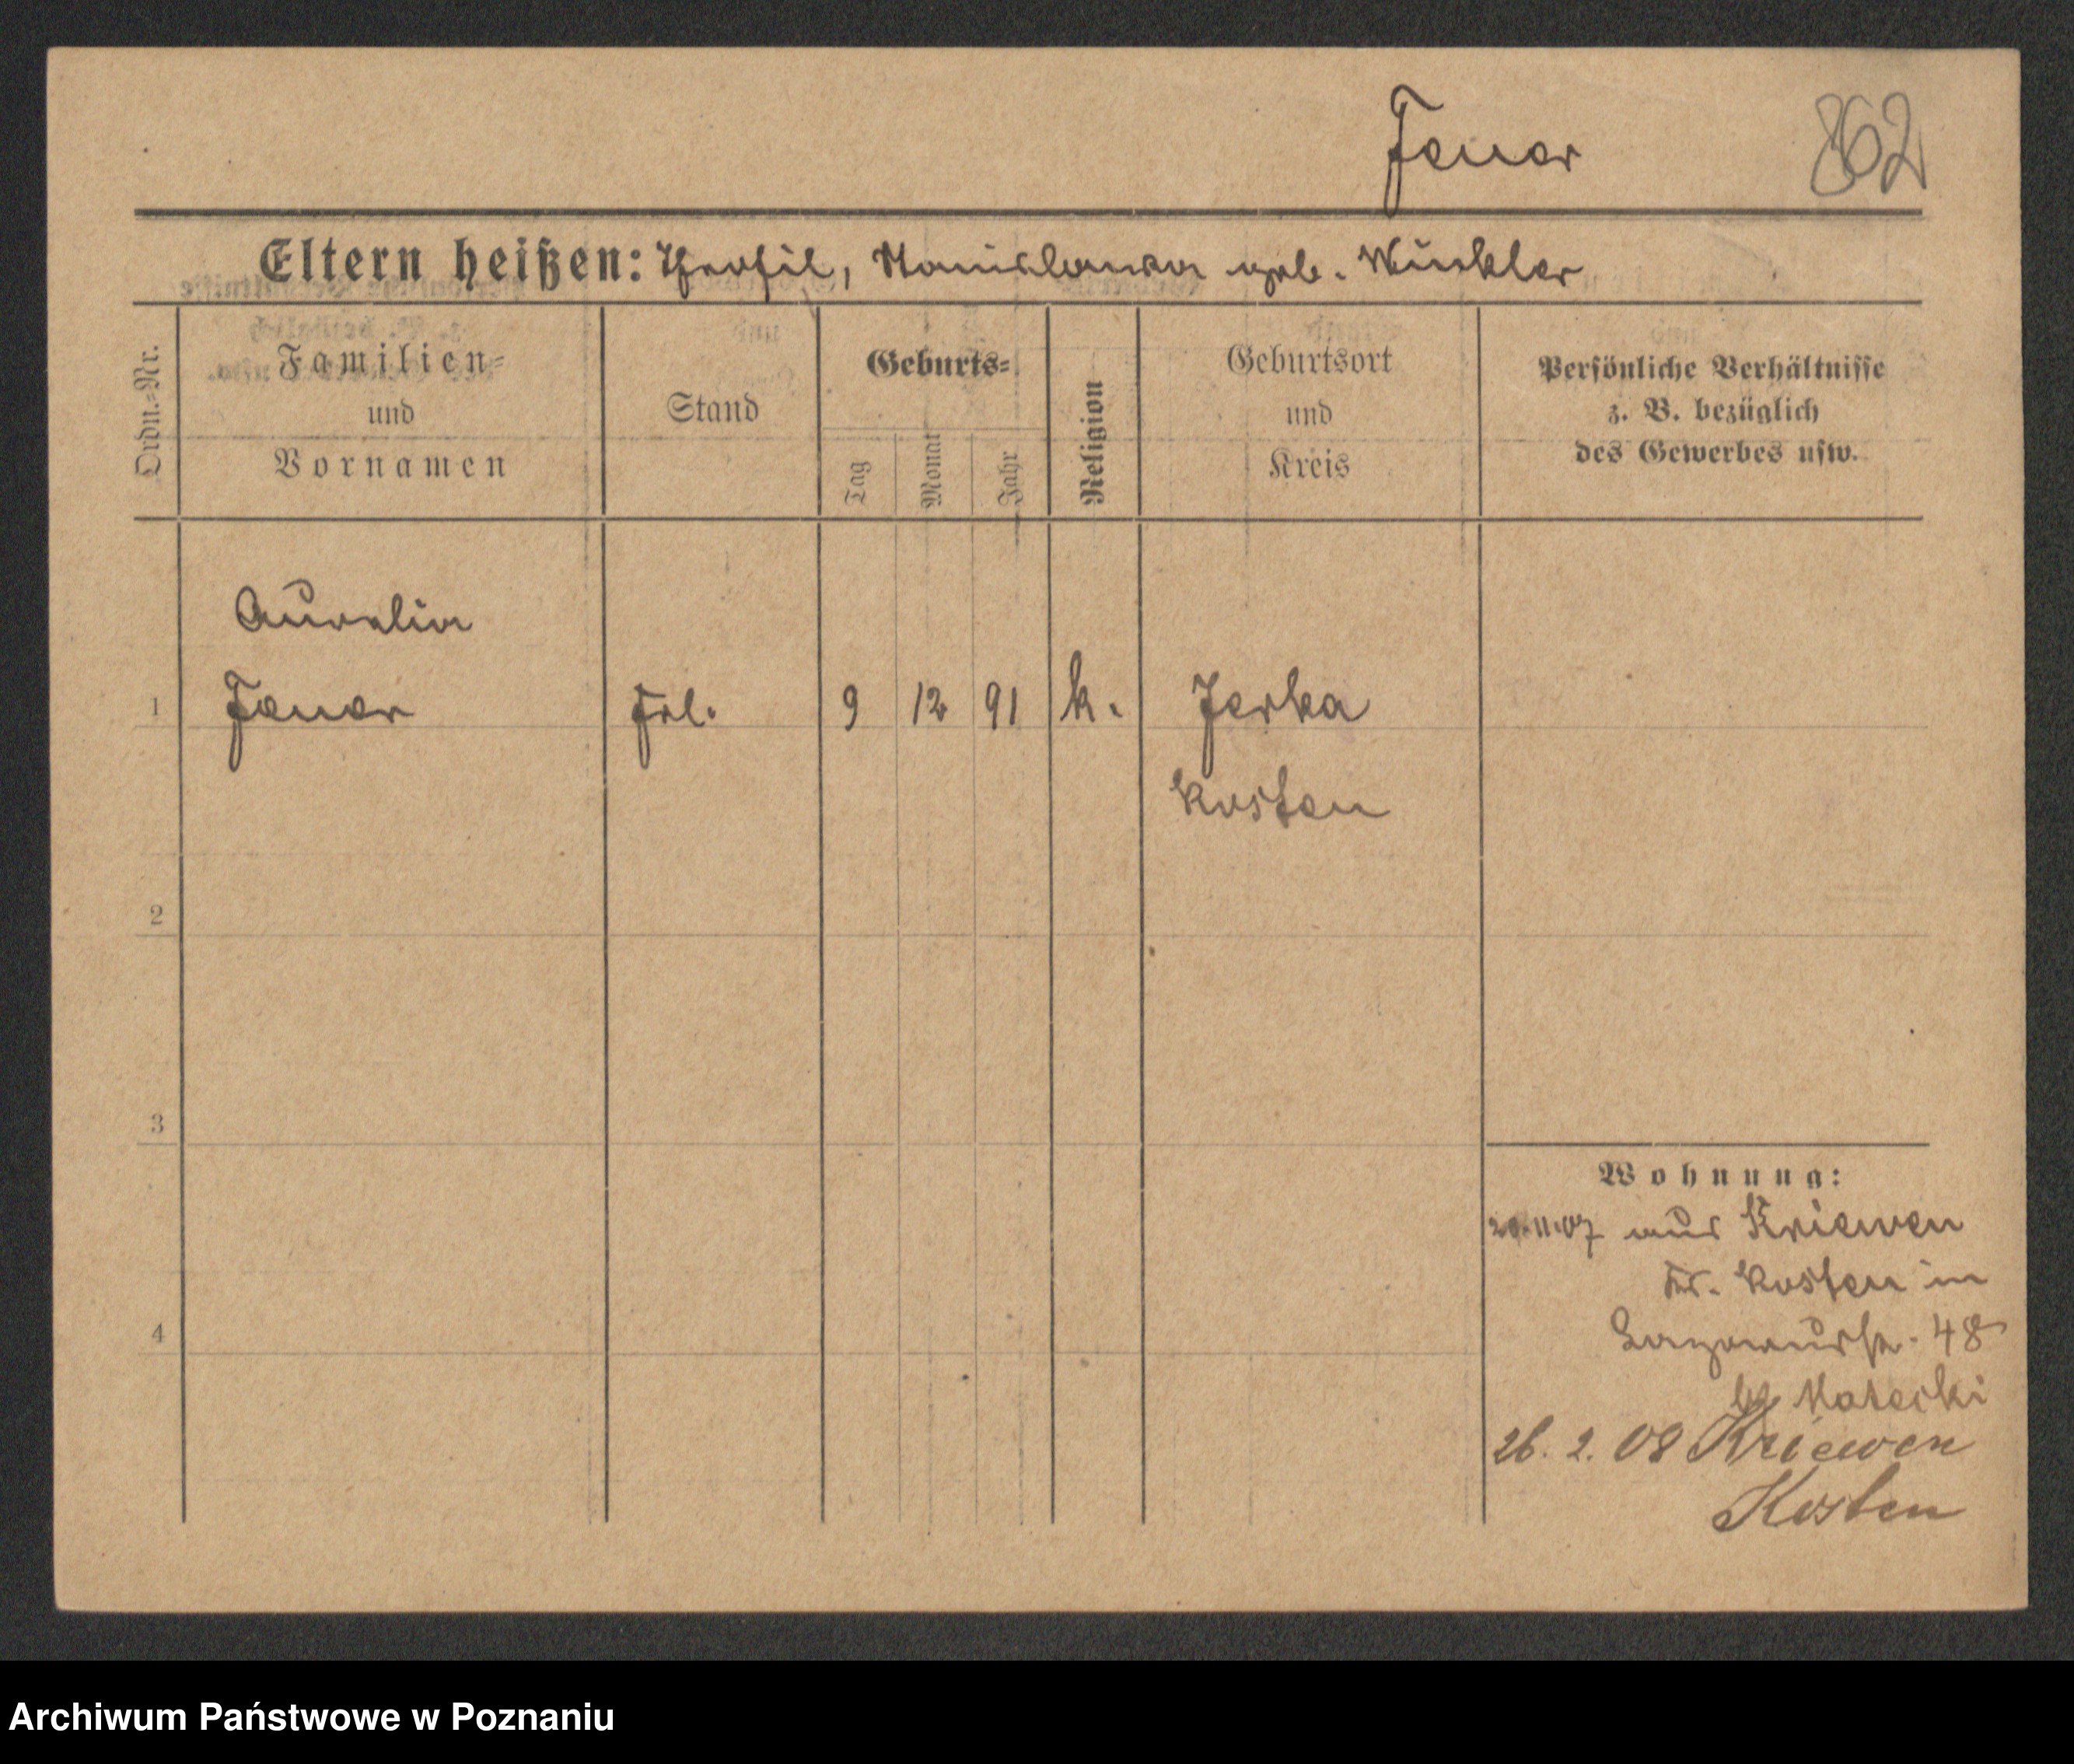 Fener
862
Eltern heißen: Theofil, Stanislawa geb. Winkler
Ordn.=Nr.
Familien=
und
Vornamen
Stand
Geburts=
Tag
Monat
Jahr
Religion
Geburtsort
und
Kreis
Persönliche Verhältnisse
z. B. bezüglich
des Gewerbes usw.
Aurelia
1 Fener Frl. 9 12 91 k. Jerka
Kosten
2
3
4
Wohnung:
aus Kriewen
Kr. Kosten in
48
26. 2. 08 Kriewen
Kosten
Archiwum Państwowe w Poznaniu